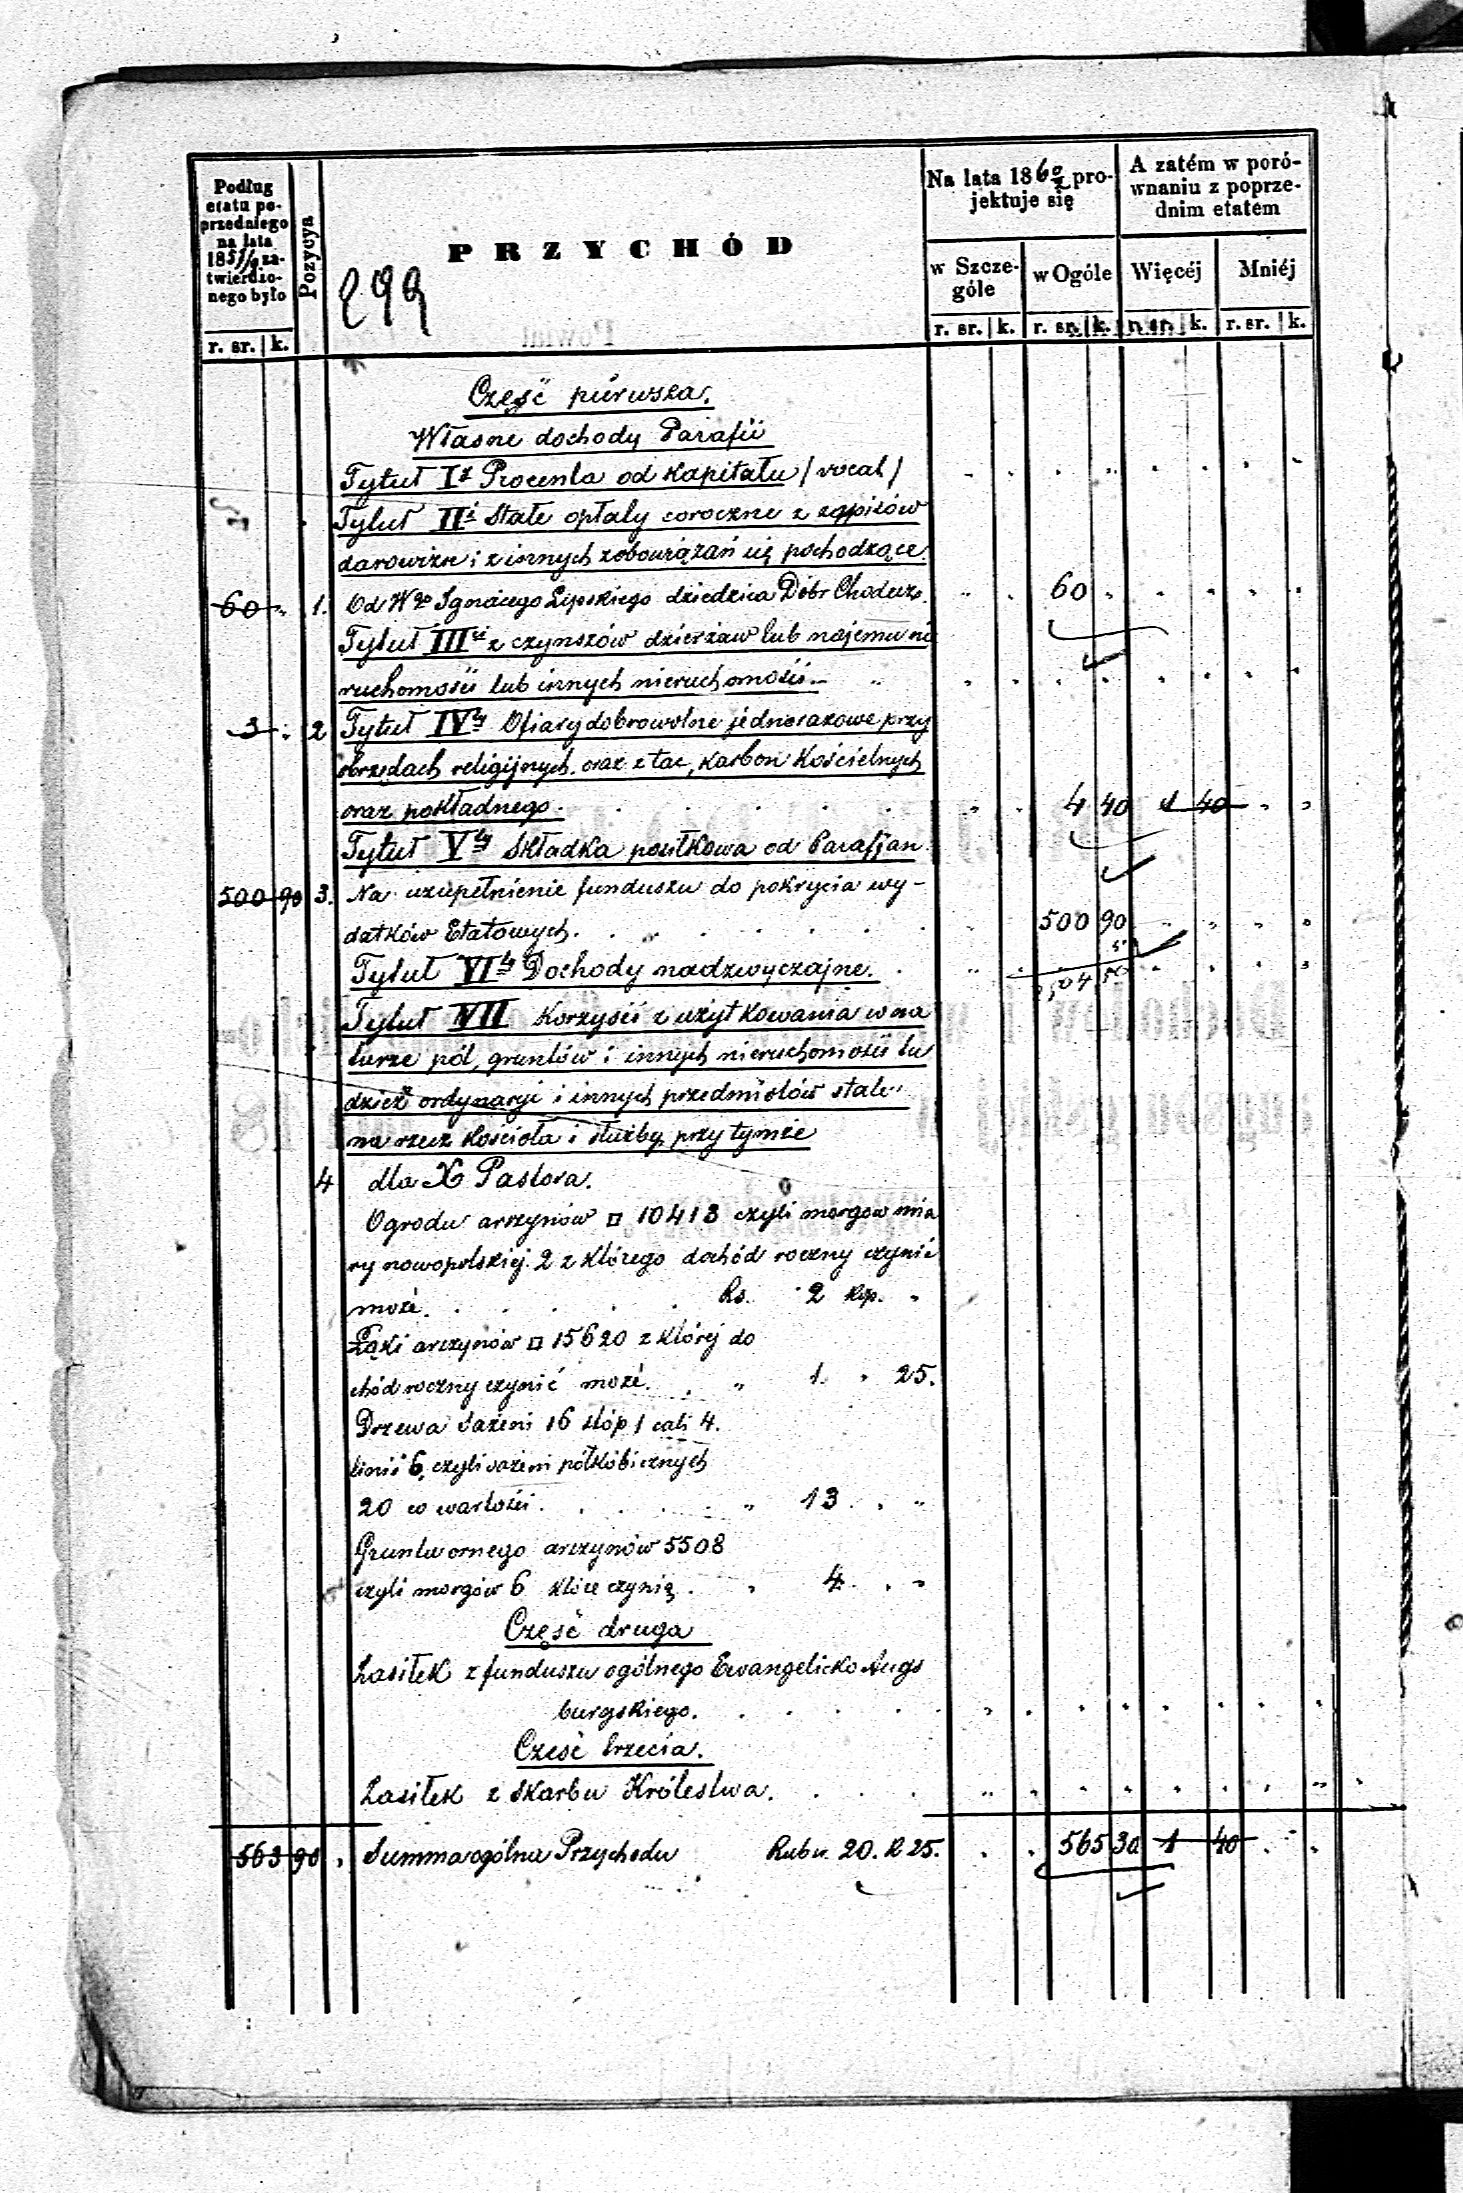 Podług
etatu po-
przedniego
na lata
185 za-
twierdzo-
nego było
r. sr. k.
Pozycya
PRZYCHÓD
299
Na lata 1860/2 pro-
jektuje się
w Szcze-
góle
r. sr. k.
w Ogóle
r. sr. k.
A zatém w poró-
wnaniu z poprze-
dnim etatem
Więcéj
r. sr. k.
Mniéj
r. sr. k.
Część pierwsza.
Własne dochody Parafii
Tytuł I Procenta od kapitału / vacat /
Tytuł II Stałe opłaty coroczne z zapisów
darowizn i z innych zobowiązań się pochodzące.
60 „ 1. Od Wgo Ignacego Lipskiego dziedzica Dóbr Chodecz. „ . 60 „
Tytuł III z czynszów dzierżaw lub najemu nie
ruchomości lub innych nieruchomości „
3 „ 2 Tytuł IVty Ofiary dobrowolne jednorazowe przy
obrzędach religijnych oraz z tac, karbon Kościelnych
oraz pokładnego. 4 40 1 40 „ „
Tytuł Vty Składka posiłkowa od Parafjan
500 90 3. Na uzupełnienie funduszu do pokrycia wy-
datków Etatowych. 500 90 „ „ „ „
Tytuł VIty Dochody nadzwyczajne.
504,50
Tytuł VII Korzyści z użytkowania w na
turze pól, gruntów i innych nieruchomości tu
dzież ordynaryi i innych przedmiotów stale
na rzecz Kościoła i służby przy tymże
4 dla X Pastora.
Ogrodu arszynów □ 10413 czyli morgow mia
ry nowopolskiej 2 z którego dochód roczny czynić
może. Rs. 2 kop. „
Łąki arszynów □ 15620 z której do
chód roczny czynić może. „ 1. „ 25.
Drzewa sążeni 16 stóp 1 cali 4.
linii 6, czyli sążeni półkubicznych
20 w wartości. „ 13. „ „
Gruntu ornego arszynów 5508
czyli morgów 6 które czynią. „ 4. „ „
Część druga
Zasiłek z funduszu ogólnego Ewangelicko Augs
burgskiego.
Cześć trzecia.
Zasiłek z Skarbu Królestwa.
563 90 „ Summa ogólna Przychodu Rubsr. 20. k 25. „ „ 565 30 1 40 „ „